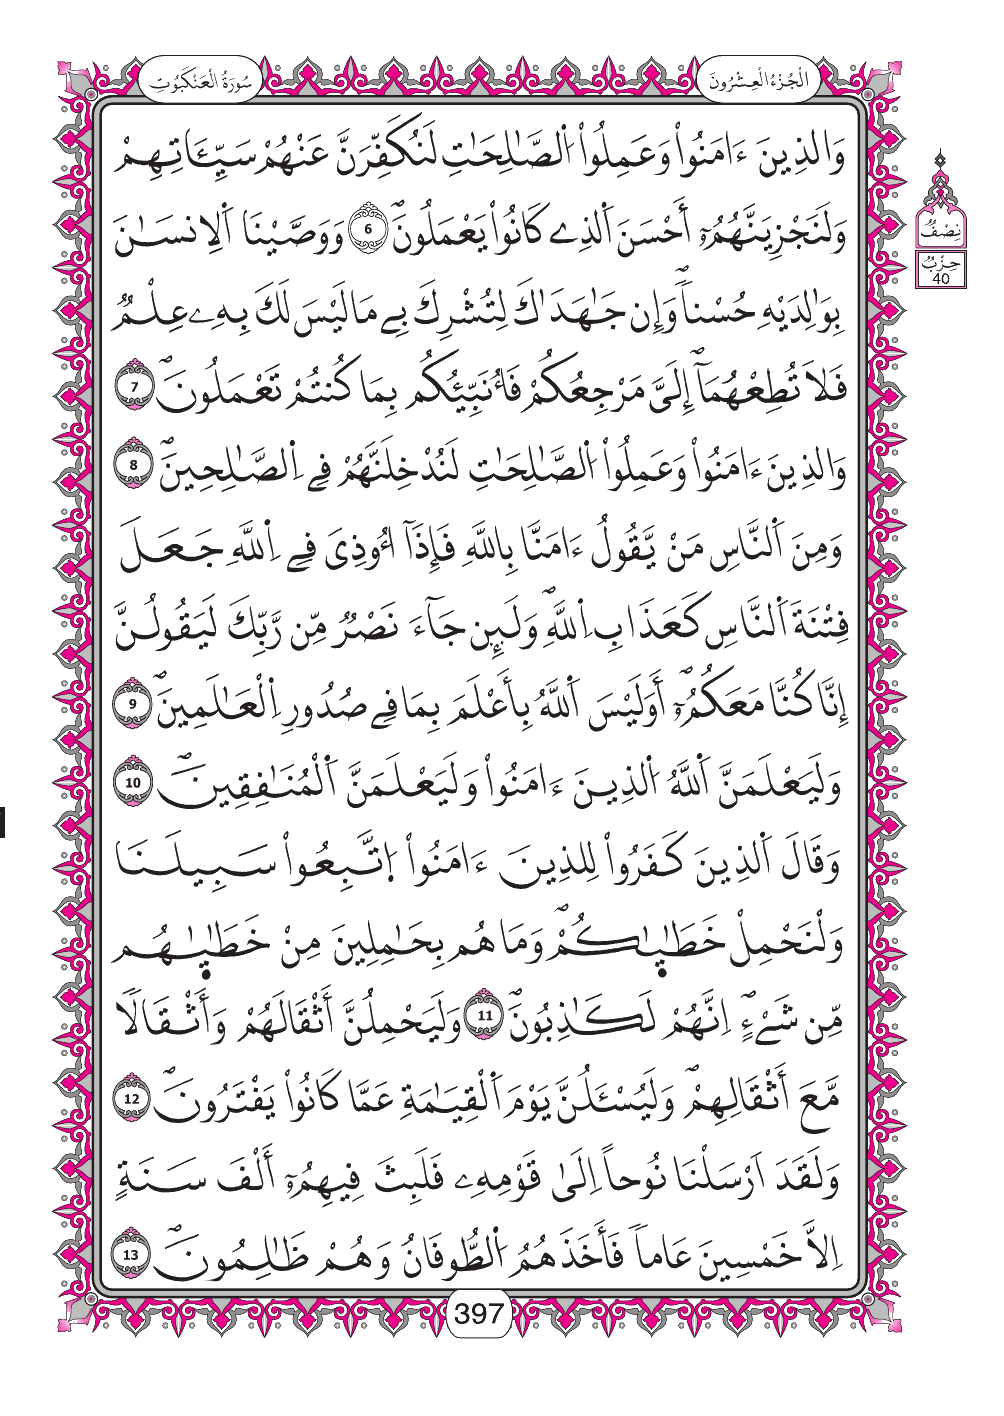 الْجُزْءُ الْعِشْرُونَ
سُورَةُ الْعَنْكَبُوتِ
وَالذِينَ ءَامَنُواْ وَعَمِلُواْ اُ۬لصَّٰلِحَٰتِ لَنُكَفِّرَنَّ عَنْهُمْ سَيِّـَٔاتِهِمْ
وَلَنَجْزِيَنَّهُمُۥٓ أَحْسَنَ اَ۬لذِے كَانُواْ يَعْمَلُونَۖ 6 وَوَصَّيْنَا اَ۬لِانسَٰنَ
بِوَٰلِدَيْهِ حُسْناٗۖ وَإِن جَٰهَدَٰكَ لِتُشْرِكَ بِے مَا لَيْسَ لَكَ بِهِۦ عِلْمٞ
فَلَا تُطِعْهُمَآۖ إِلَىَّ مَرْجِعُكُمْ فَأُنَبِّئُكُم بِمَا كُنتُمْ تَعْمَلُونَۖ 7
وَالذِينَ ءَامَنُواْ وَعَمِلُواْ اُ۬لصَّٰلِحَٰتِ لَنُدْخِلَنَّهُمْ فِے اِ۬لصَّٰلِحِينَۖ 8
وَمِنَ اَ۬لنَّاسِ مَنْ يَّقُولُ ءَامَنَّا بِاللَّهِ فَإِذَآ أُوذِىَ فِے اِ۬للَّهِ جَعَلَ
فِتْنَةَ اَ۬لنَّاسِ كَعَذَابِ اِ۬للَّهِۖ وَلَئِن جَآءَ نَصْرٞ مِّن رَّبِّكَ لَيَقُولُنَّ
إِنَّا كُنَّا مَعَكُمُۥٓۖ أَوَلَيْسَ اَ۬للَّهُ بِأَعْلَمَ بِمَا فِے صُدُورِ اِ۬لْعَٰلَمِينَۖ 9
وَلَيَعْلَمَنَّ اَ۬للَّهُ اُ۬لذِينَ ءَامَنُواْ وَلَيَعْلَمَنَّ اَ۬لْمُنَٰفِقِينَۖ 10
وَقَالَ اَ۬لذِينَ كَفَرُواْ لِلذِينَ ءَامَنُواْ اُ۪تَّبِعُواْ سَبِيلَنَا
وَلْنَحْمِلْ خَطَٰيَٰكُمْۖ وَمَا هُم بِحَٰمِلِينَ مِنْ خَطَٰيَٰهُم
مِّن شَےْءٍۖ اِنَّهُمْ لَكَٰذِبُونَۖ 11 وَلَيَحْمِلُنَّ أَثْقَالَهُمْ وَأَثْقَالاٗ
مَّعَ أَثْقَالِهِمْۖ وَلَيُسْـَٔلُنَّ يَوْمَ اَ۬لْقِيَٰمَةِ عَمَّا كَانُواْ يَفْتَرُونَۖ 12
وَلَقَدَ اَرْسَلْنَا نُوحاً اِلَىٰ قَوْمِهِۦ فَلَبِثَ فِيهِمُۥٓ أَلْفَ سَنَةٍ
اِلَّا خَمْسِينَ عَاماٗۖ فَأَخَذَهُمُ اُ۬لطُّوفَانُ وَهُمْ ظَٰلِمُونَۖ 13
نِصْفُ
حِزْبُ
40
397